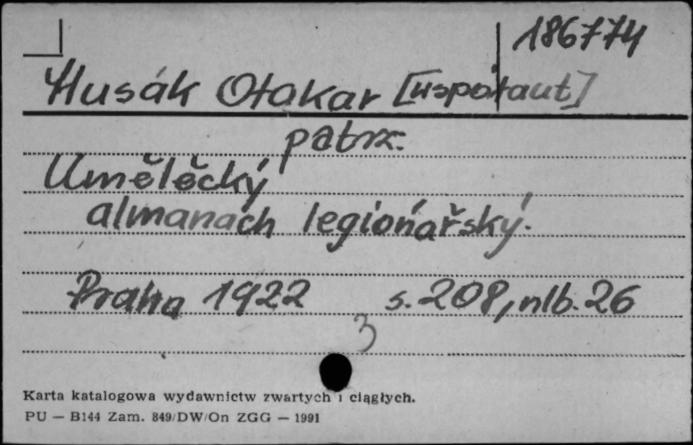 186774
Husák Otakar [uspořaut]
patrz.
Umělěcký
almanach legionářský.
Praha 1922 s. 208, nlb. 26
3
Karta katalogowa wydawnictw zwartych i ciągłych.
PU — B144 Zam. 849/DW/On ZGG — 1991